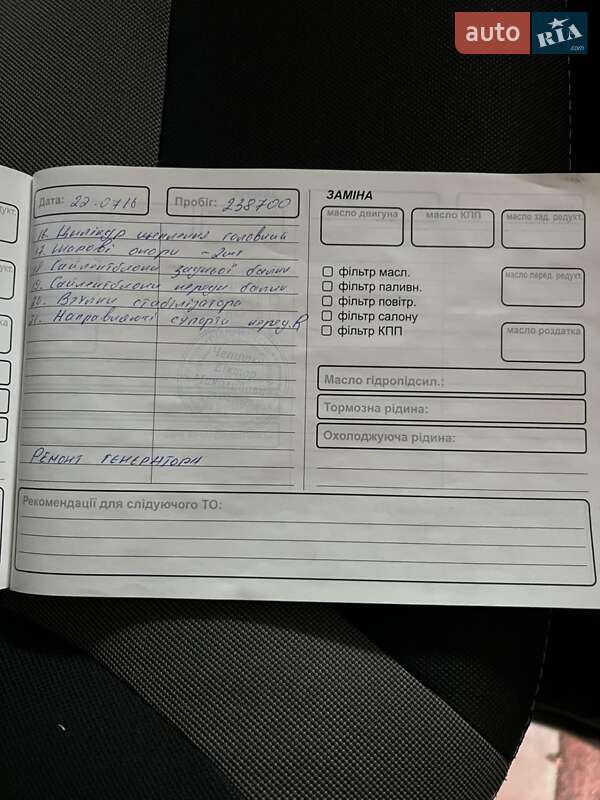 auto RIA .com
Дата: 22.0716
Пробіг: 238700
16. Циліндр щеплення головний
17. Шарові опори - 2шт
18. Сайлентблоки задньої балки
19. Сайлентблоки передн балки
20. Втулки стабілізатора
21. Направляючі супорти перед.
Ремонт генератора
ЗАМІНА
масло двигуна
масло КПП
масло зад. редукт.
фільтр масл.
фільтр паливн.
фільтр повітр.
фільтр салону
фільтр КПП
масло перед. редукт.
масло роздатка
Масло гідропідсил.:
Тормозна рідина:
Охолоджуюча рідина:
Рекомендації для слідуючого ТО: